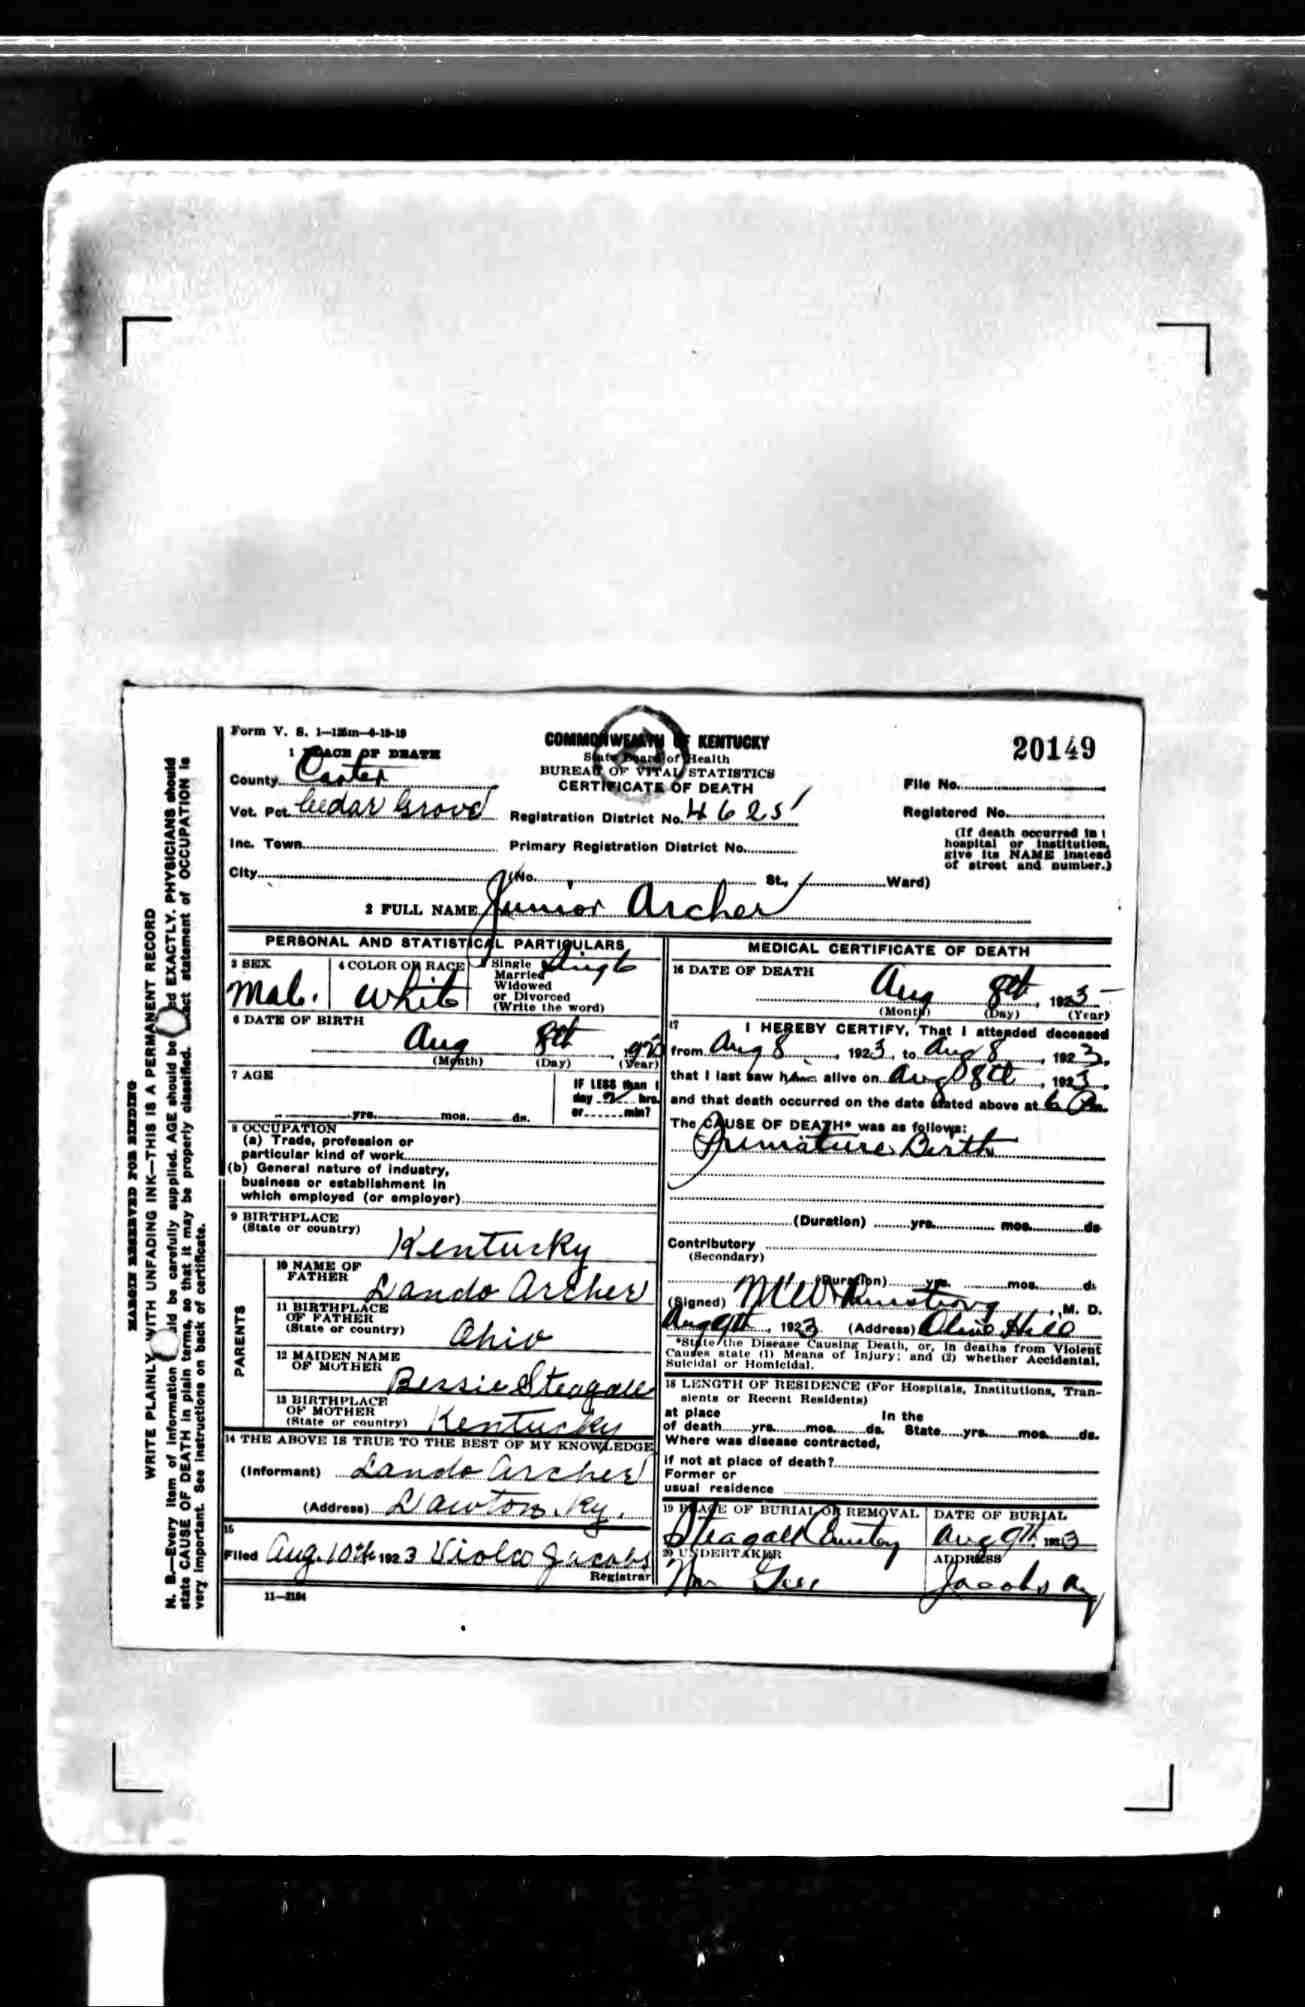 MARGIN RESERVED FOR BINDING
WRITE PLAINLY WITH UNFADING INK—THIS IS A PERMANENT RECORD
N. B.—Every item of information should be carefully supplied. AGE should be stated EXACTLY. PHYSICIANS should
state CAUSE OF DEATH in plain terms, so that it may be properly classified. Exact statement of OCCUPATION is
very important. See instructions on back of certificate.
Form V. S. 1—125m—4-19-19
COMMONWEALTH OF KENTUCKY
State Board of Health
BUREAU OF VITAL STATISTICS
CERTIFICATE OF DEATH
20149
1 PLACE OF DEATH
County Carter
File No.
Vot. Pct. Cedar Grove
Registration District No. 4625
Registered No.
Inc. Town
Primary Registration District No.
(If death occurred in a
hospital or institution,
give its NAME instead
of street and number.)
City (No. St., Ward)
2 FULL NAME Junior Archer
PERSONAL AND STATISTICAL PARTICULARS
3 SEX
Male.
4 COLOR OR RACE
White
Single
Married
Widowed
or Divorced
(Write the word)
Single
6 DATE OF BIRTH
Aug 8th, 1923
(Month) (Day) (Year)
7 AGE
yrs. mos. ds.
IF LESS than 1
day 2 hrs.
or min?
8 OCCUPATION
(a) Trade, profession or
particular kind of work
(b) General nature of industry,
business or establishment in
which employed (or employer)
9 BIRTHPLACE
(State or country)
Kentucky
PARENTS
10 NAME OF
FATHER
Lando Archer
11 BIRTHPLACE
OF FATHER
(State or country)
Ohio
12 MAIDEN NAME
OF MOTHER
Bessie Steagall
13 BIRTHPLACE
OF MOTHER
(State or country)
Kentucky
14 THE ABOVE IS TRUE TO THE BEST OF MY KNOWLEDGE
(Informant) Lando Archer
(Address) Lawton. Ky.
15
Filed Aug. 10th 1923 Viola Jacobs
Registrar
11—2184
MEDICAL CERTIFICATE OF DEATH
16 DATE OF DEATH
Aug 8th, 1923
(Month) (Day) (Year)
17
I HEREBY CERTIFY, That I attended deceased
from Aug 8, 1923, to Aug 8, 1923,
that I last saw him alive on Aug 8th, 1923,
and that death occurred on the date stated above at 6 Pm.
The CAUSE OF DEATH* was as follows:
Premature Birth
(Duration) yrs. mos. ds
Contributory
(Secondary)
(Duration) yrs. mos. ds
(Signed) Armstrong, M. D.
Aug 9th, 1923 (Address) Olive Hill
*State the Disease Causing Death, or, in deaths from Violent
Causes state (1) Means of Injury; and (2) whether Accidental,
Suicidal or Homicidal.
18 LENGTH OF RESIDENCE (For Hospitals, Institutions, Tran-
sients or Recent Residents)
at place In the
of death yrs. mos. ds. State yrs. mos. ds.
Where was disease contracted,
if not at place of death?
Former or
usual residence
19 PLACE OF BURIAL OR REMOVAL
Steagall Cemetery
DATE OF BURIAL
Aug 9th 1923
20 UNDERTAKER
Wm
ADDRESS
Jacobs Ky